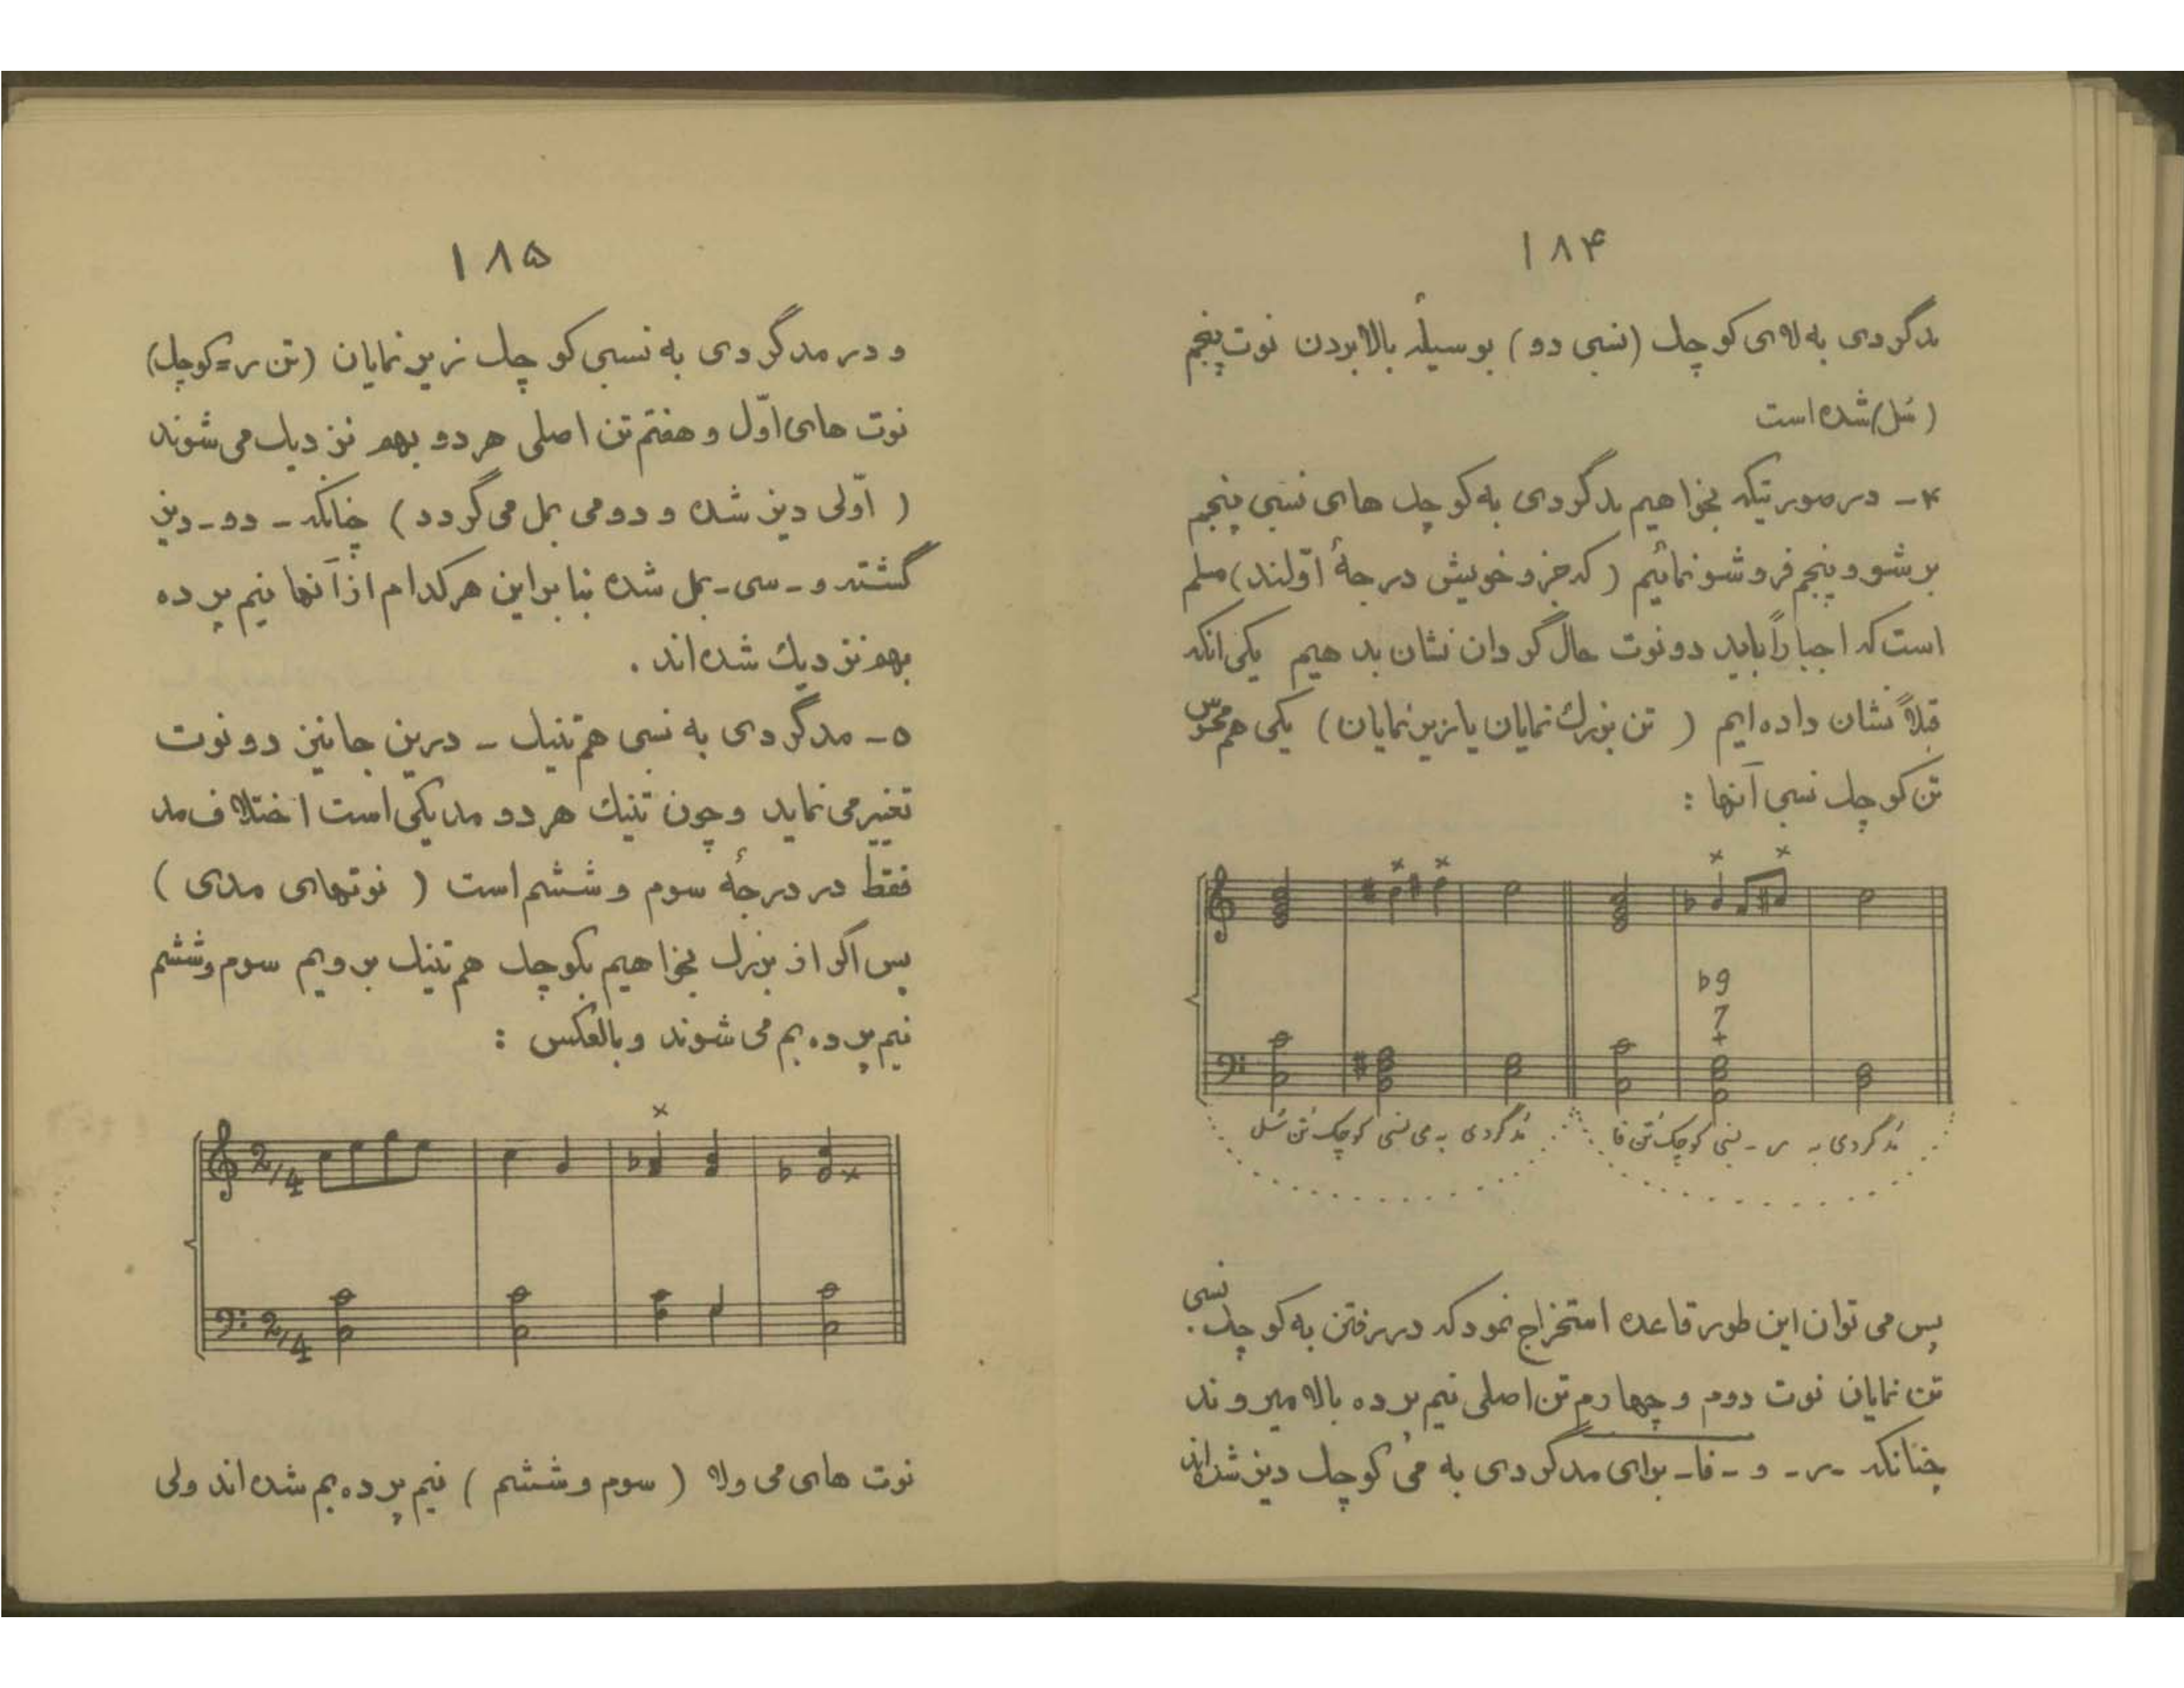 ۱۸۴
مدگردی به لا‌ی کوچک (نسبی دو) بوسیلهٔ بالا بردن نوت پنجم
(سُل) شده است
۴- در صورتیکه بخواهیم مدگردی به کوچک های نسبی پنجم
بر شو و پنجم فرو شو نمائیم (که جزو خویش درجهٔ اوّلند) مسلم
است که اجباراً باید دو نوت حال گردان نشان بدهیم یکی انکه
قبلاً نشان داده ایم (تن بزرگ نمایان یا زیرنمایان) یکی هم محسوس
تن کوچک نسبی آنها :
♭9
7
+
مُدگردی به می نسبی کوچک تُن سُل
مُدگردی به ر - نسبی کوچک تُن فا
پس می توان این طور قاعده استخراج نمود که در رفتن به کوچک نسبی
تن نمایان نوت دوم و چهارم تن اصلی نیم پرده بالا میروند
چنانکه -ر- و -فا- برای مدگردی به می کوچک دیز شده‌اند
۱۸۵
و در مدگردی به نسبی کوچک زیر نمایان (تن ر=کوچک)
نوت های اوّل و هفتم تن اصلی هر دو بهم نزدیک می شوند
(اوّلی دیز شده و دومی بمل می گردد) چنانکه - دو - دیز
گشته و - سی - بمل شده بنا براین هر کدام از آنها نیم پرده
بهم نزدیک شده اند .
۵- مدگردی به نسبی هم تنیک - درین جا نیز دو نوت
تغییر می نماید و چون تنیك هر دو مد یکی است اختلاف مد
فقط در درجهٔ سوم و ششم است (نوتهای مدی)
پس اگر از بزرگ بخواهیم بکوچک هم تنیک برویم سوم وششم
نیم پرده بم می شوند و بالعکس :
2/4
2/4
نوت های می و لا (سوم و ششم) نیم پرده بم شده اند ولی